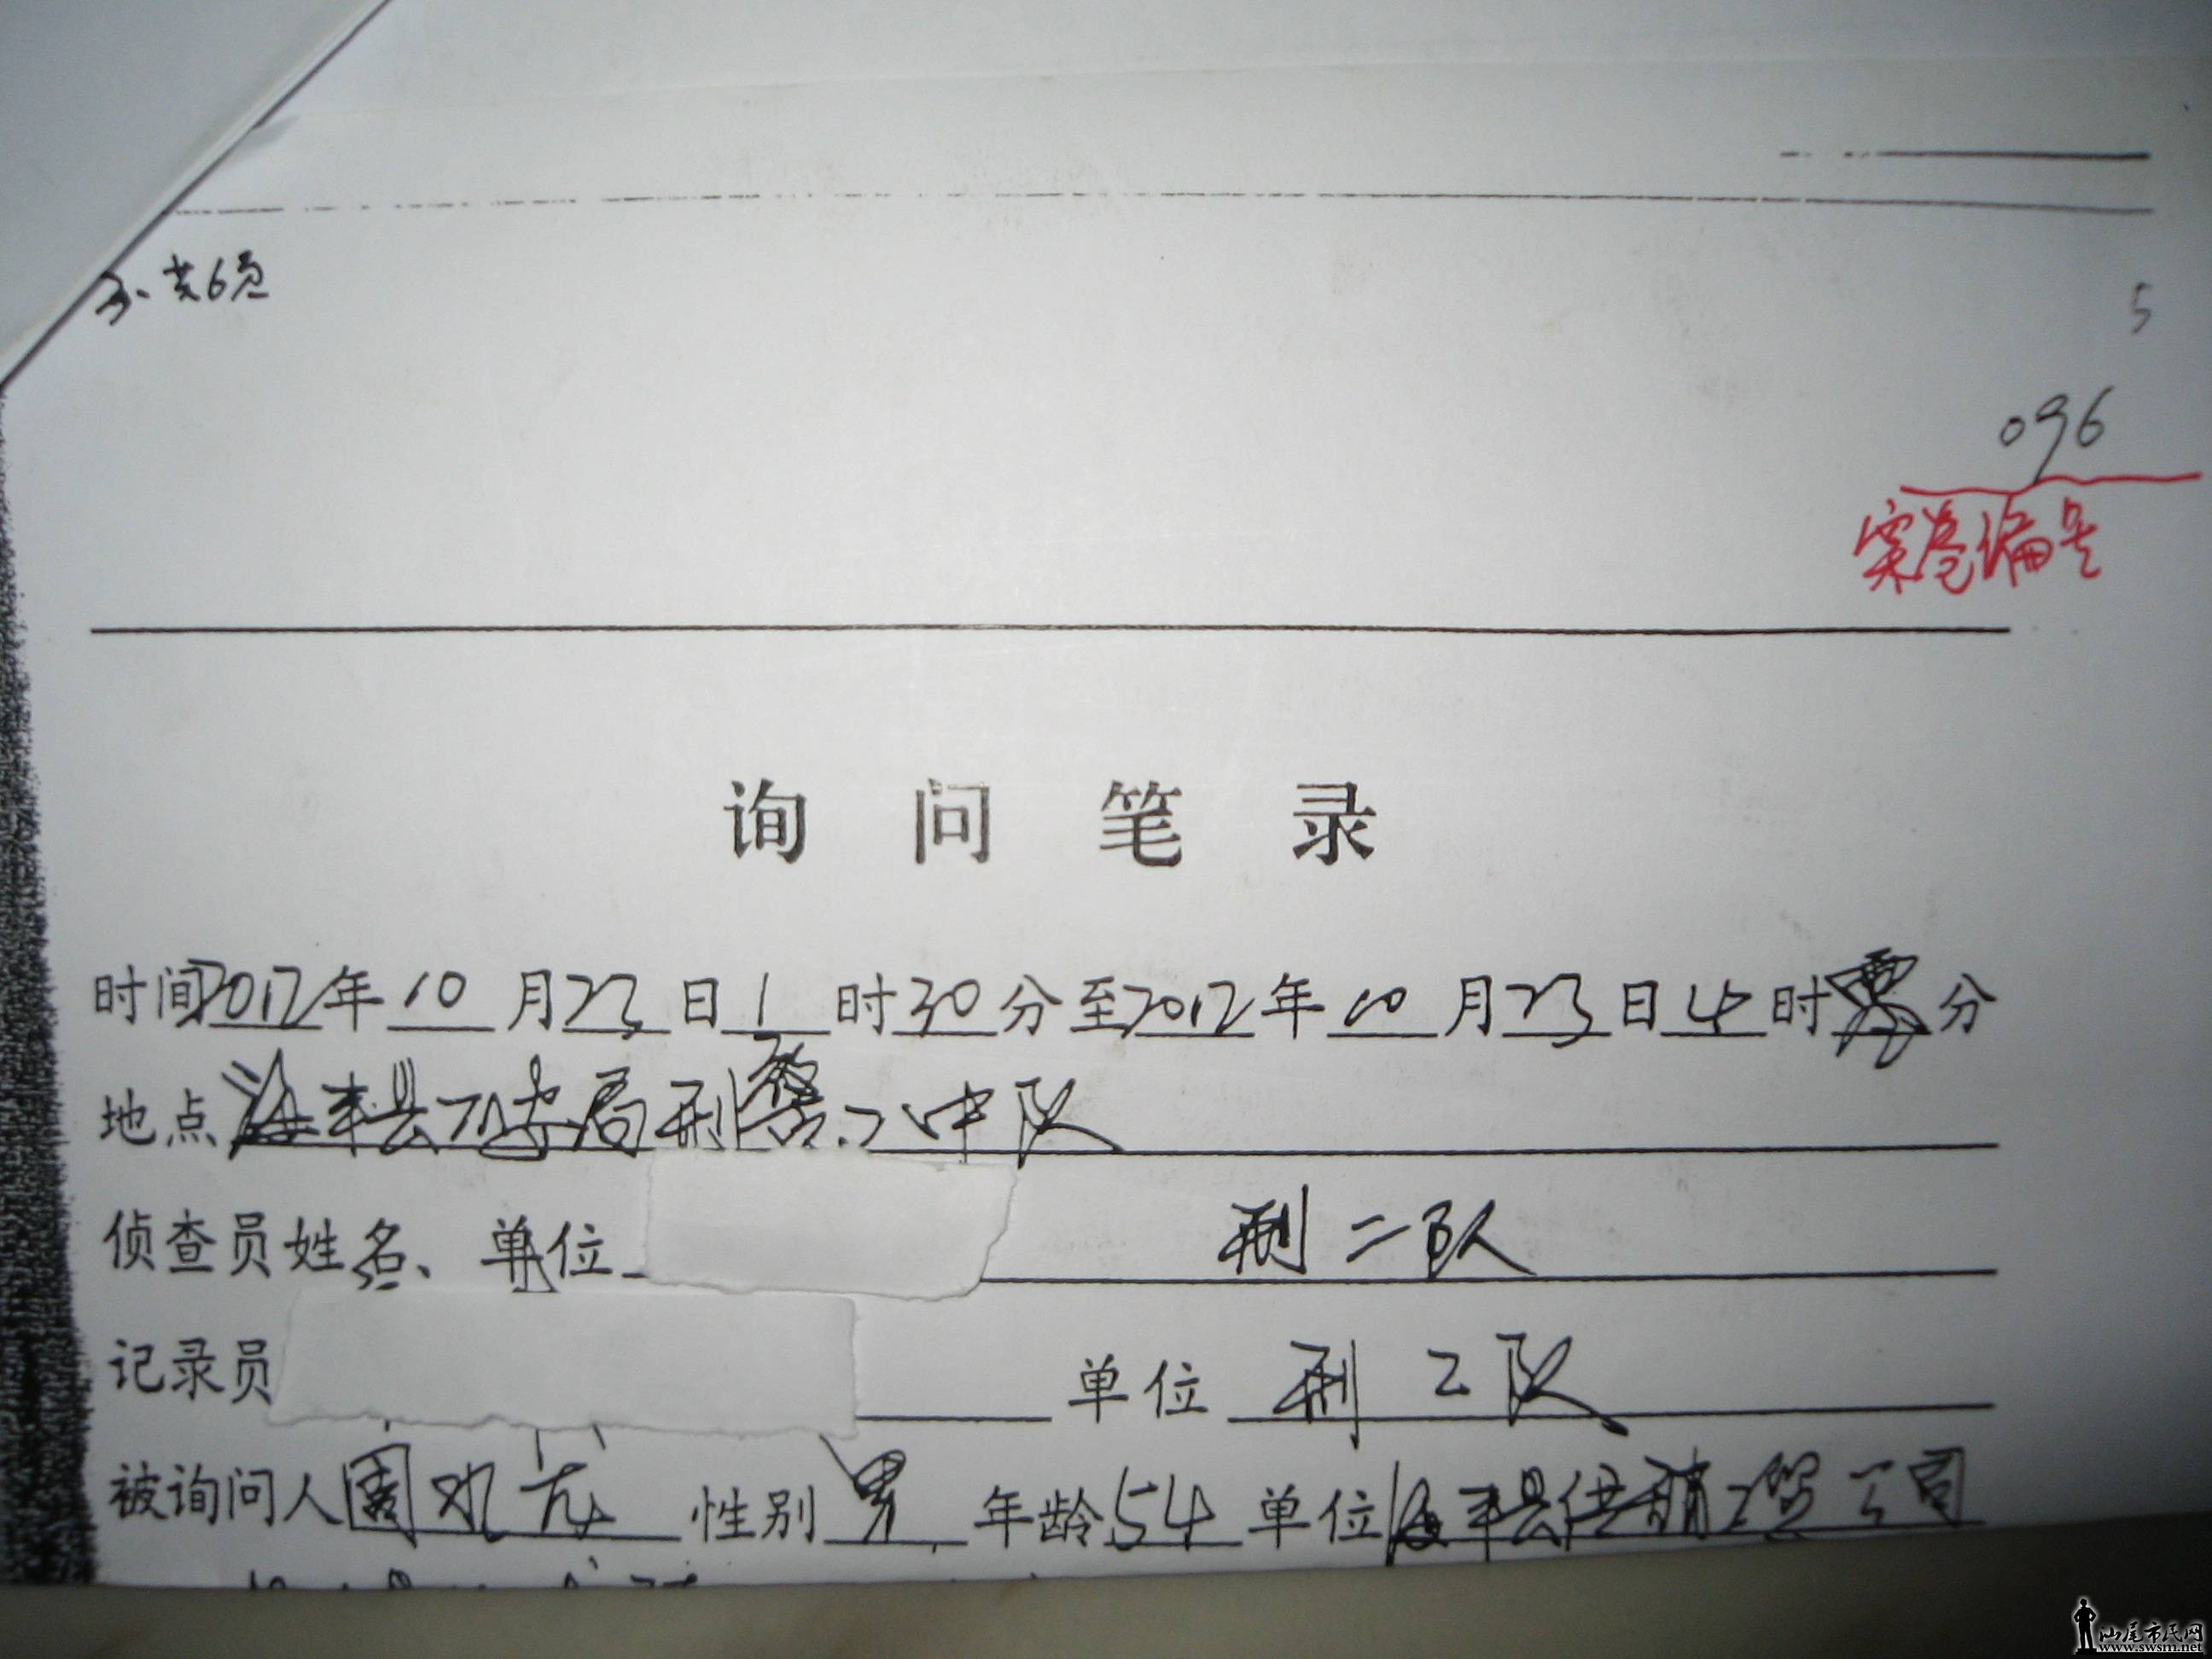 共6页
5
096
案卷编号
询问笔录
时间2012年10月23日1时30分至2012年10月23日4时 分
地点海丰县公安局刑警二中队
侦查员姓名、单位 刑二队
记录员 单位 刑二队
被询问人周 龙 性别男 年龄54 单位海丰县供销 公司
汕尾市民网
www.swsm.net